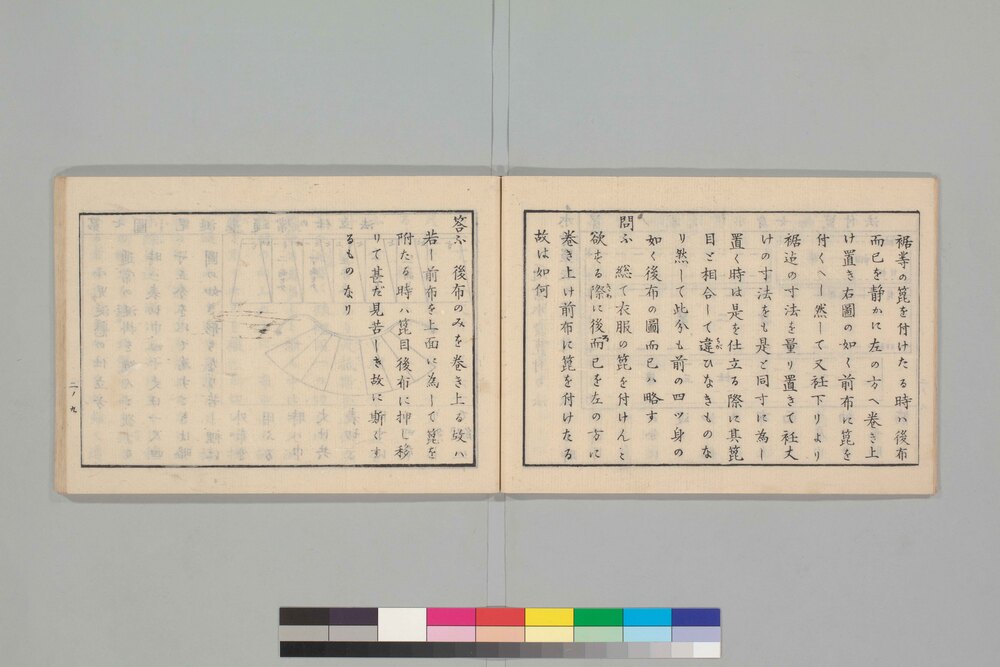 裾等の箆を付けたる時ハ後布
而已を静かに左の方へ巻き上
け置き右圖の如く前布に箆を
付くへし然して又衽下りより
裾迠の寸法を量り置きて衽丈
けの寸法をも是と同寸に為し
置く時は是を仕立る際に其箆
目と相合して違ひなきものな
り然して此分も前の四ツ身の
如く後布の圖而已ハ略す
問ふ 総て衣服の箆を付けんと
欲する際に後而已を左の方に
巻き上け前布に箆を付けたる
故は如何
答ふ 後布のみを巻き上る故ハ
若し前布を上面に為して箆を
附たる時ハ箆目後布に押し移
りて甚だ見苦しき故に斯くす
るものなり
二ノ九